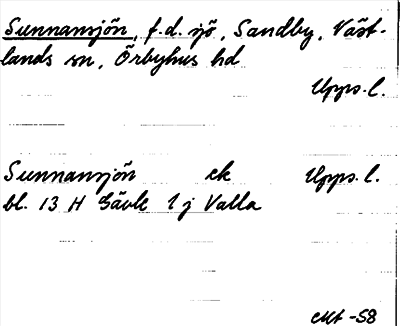 Sunnansjön, f.d. sjö, Sandby, Väst-
lands sn, Örbyhus hd
Upps. l.
Sunnansjön ek Upps. l.
bl. 13 H Gävle 1 j Valla
-58